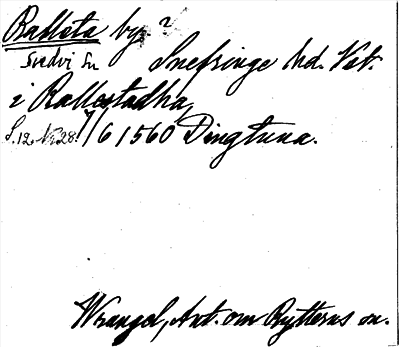 Rallsta by ?
Svedvi sn Snefringe hd. Vstm.
i Rallestadha
S.12 Nr 28. 7/6 1560 Dingtuna.
Wrangel, Ant. om Rytterns sn.